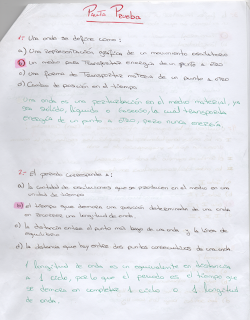 Pauta Prueba
1.- Una onda se define como:
a) Una representación gráfica de un movimiento oscilatorio
b) un medio para transportar energía de un punto a otro
c) una forma de transportar materia de un punto a otro
d) Cambio de posición en el tiempo.
Una onda es una perturbación en el medio material, ya
sea sólido, líquido o gaseoso, la cual transporta
energía de un punto a otro, pero nunca materia
2.- El periodo corresponde a:
a) la cantidad de oscilaciones que se producen en el medio en una
unidad de tiempo
b) el tiempo que demora una posición determinada de una onda
en recorrer una longitud de onda.
c) la distancia entre el punto más largo de una onda y la línea de
equilibrio
d) la distancia que hay entre dos puntos consecutivos de una onda.
1 longitud de onda es un equivalente en distancia
a 1 ciclo, por lo que el periodo es el tiempo que
se demora en completar 1 ciclo o 1 longitud
de onda.